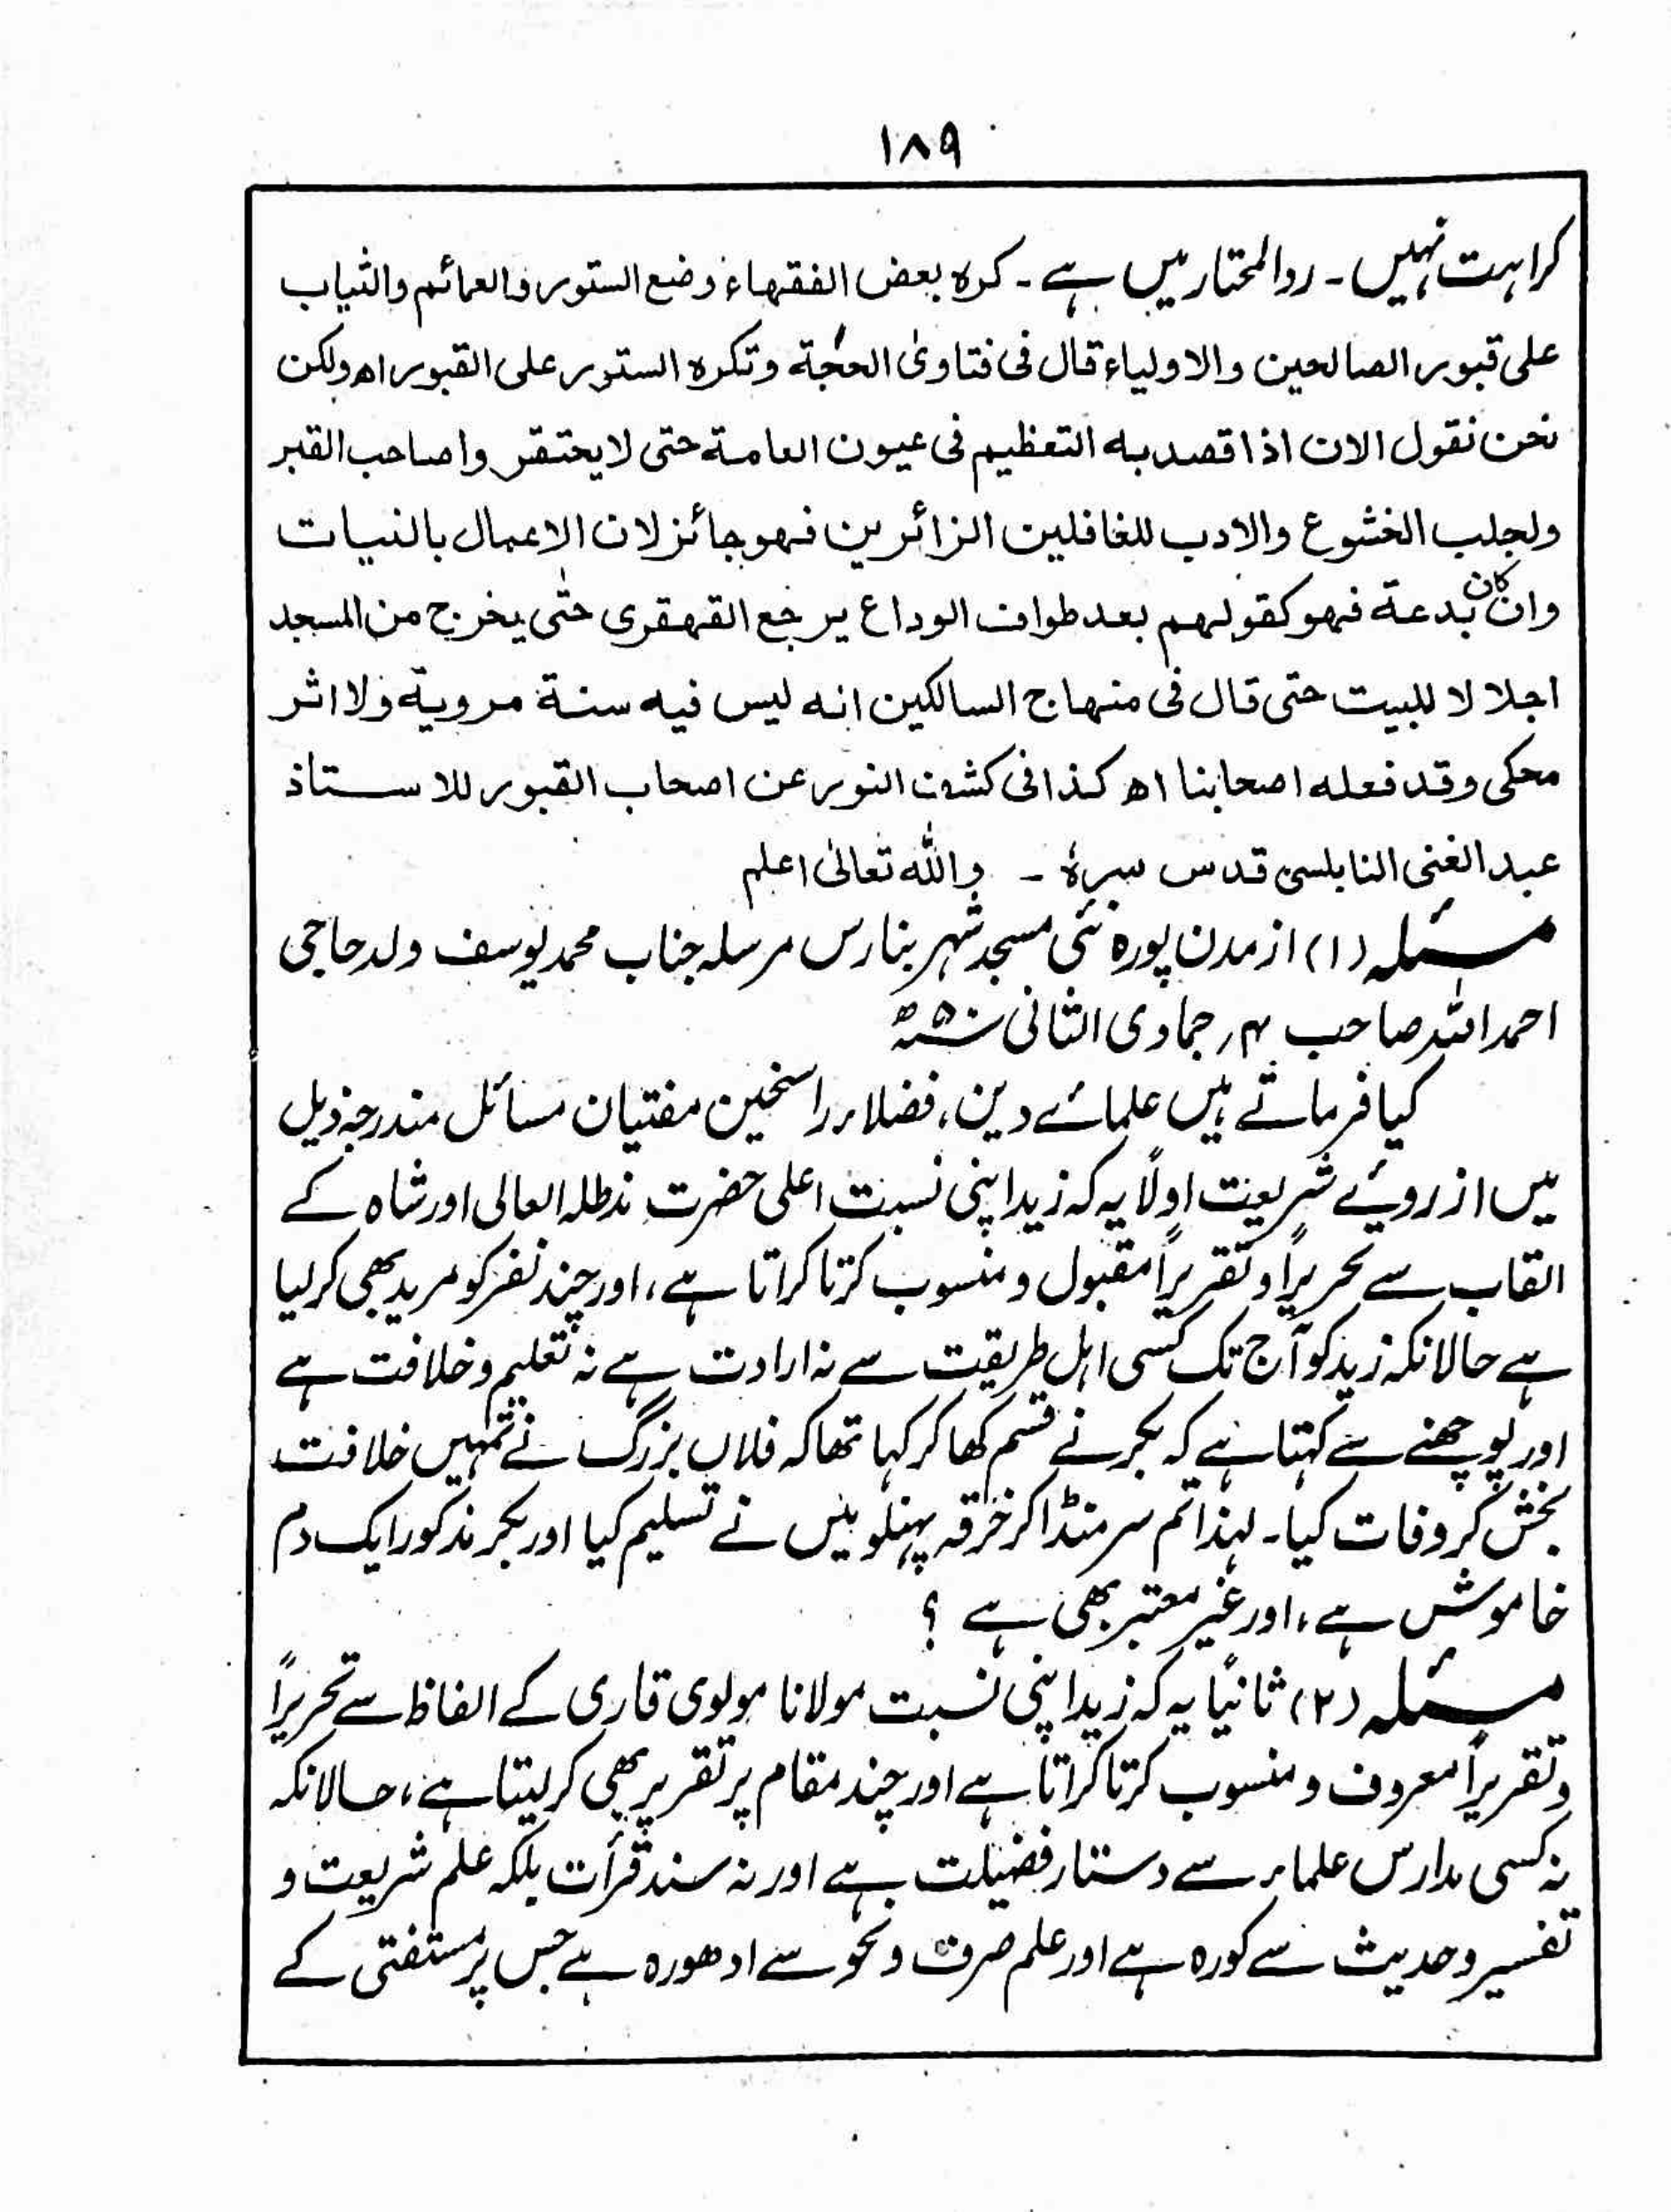 ۱۸۹
کراہت نہیں۔ ردالمحتار میں ہے۔ کرہ بعض الفقہاء وضع الستور والعمائم والثیاب
علی قبور الصالحین والاولیاء قال فی فتاوی الحجة وتکرہ الستور علی القبور اھ ولکن
نحن نقول الان اذا قصد به التعظیم فی عیون العامة حتی لا یحتقر وا صاحب القبر
ولجلب الخشوع والادب للغافلین الزائرین فهو جائز لان الاعمال بالنیات
وان کان بدعة فهو کقولهم بعد طواف الوداع یرجع القهقری حتٰی یخرج من المسجد
اجلالا للبیت حتی قال فی منهاج السالکین انه لیس فیه سنة مرویة ولا اثر
محکی وقد فعله اصحابنا اھ کذا فی کشف النور عن اصحاب القبور للاستاذ
عبد الغنی النابلسی قدس سرہٗ ۔ واللّٰه تعالیٰ اعلم
مسئلہ (۱) از مدن پورہ نئی مسجد شہر بنارس مرسلہ جناب محمد یوسف ولد حاجی
احمد اللہ صاحب ۴؍ جمادی الثانی ۵۰ھ
کیا فرماتے ہیں علمائے دین، فضلاء راسخین مفتیان مسائل مندرجہ ذیل
میں از روئے شریعت اولاً یہ کہ زید اپنی نسبت اعلی حضرت مدظلہ العالی اور شاہ کے
القاب سے تحریراً و تقریراً مقبول و منسوب کرتا کراتا ہے، اور چند نفر کو مرید بھی کر لیا
ہے حالانکہ زید کو آج تک کسی اہل طریقت سے نہ ارادت ہے نہ تعلیم و خلافت ہے
اور پوچھنے سے کہتا ہے کہ بکر نے قسم کھا کر کہا تھا کہ فلاں بزرگ نے تمہیں خلافت
بخش کر وفات کیا۔ لہذا تم سر منڈا کر خرقہ پہنلو میں نے تسلیم کیا اور بکر مذکور ایک دم
خاموش ہے، اور غیر معتبر بھی ہے ؟
مسئلہ (۲) ثانیًا یہ کہ زید اپنی نسبت مولانا مولوی قاری کے الفاظ سے تحریراً
و تقریراً معروف و منسوب کرتا کراتا ہے اور چند مقام پر تقریر بھی کر لیتا ہے، حالانکہ
نہ کسی مدارس علماء سے دستار فضیلت ہے اور نہ سند قرأت بلکہ علم شریعت و
تفسیر و حدیث سے کورہ ہے اور علم صرف و نحو سے ادھورہ ہے جس پر مستفتی کے